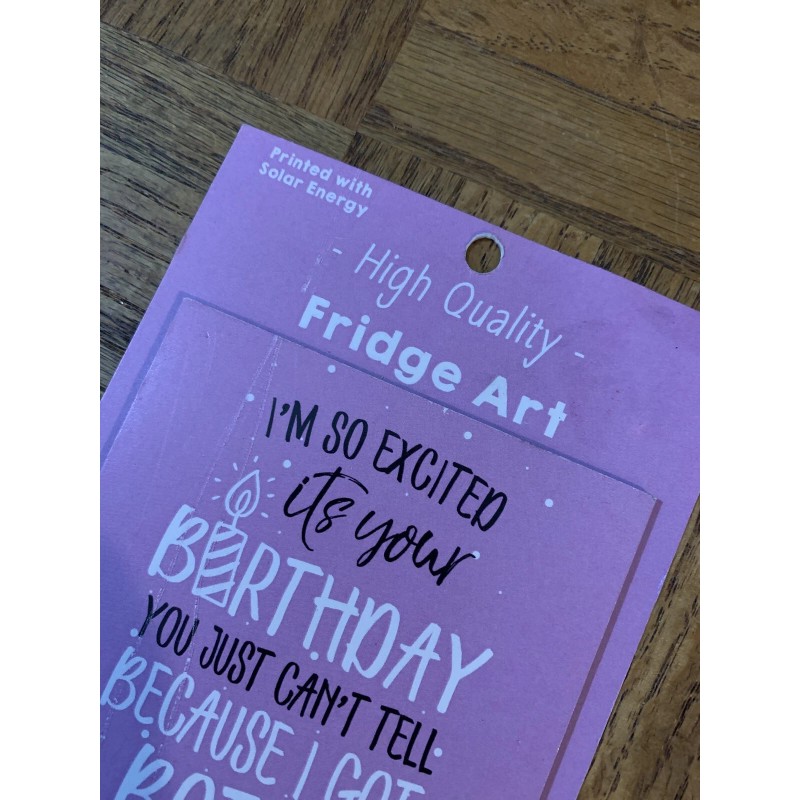 Printed with
Solar Energy
- High Quality -
Fridge Art
I'M SO EXCITED
its your
BIRTHDAY
YOU JUST CAN'T TELL
BECAUSE I GOT